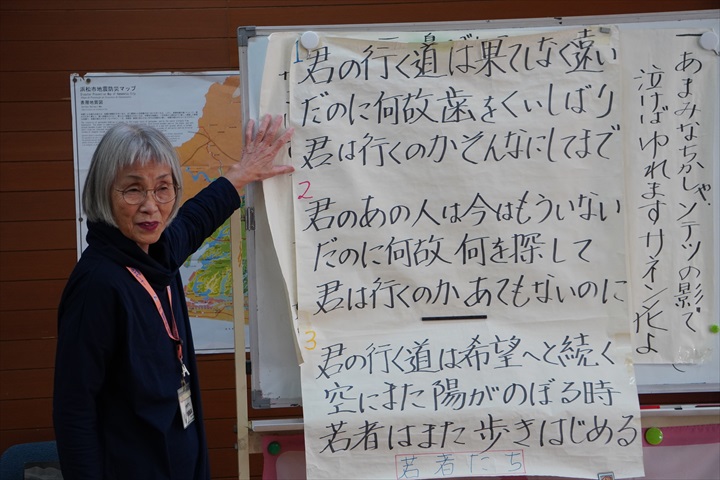 浜松市地震防災マップ
1
君の行く道は果てしなく遠い
だのに何故歯をくいしばり
君は行くのかそんなにしてまで
2
君のあの人は今はもういない
だのに何故何を探して
君は行くのかあてもないのに
3
君の行く道は希望へと続く
空にまた陽がのぼる時
若者はまた歩きはじめる
若者たち
一あまみなちかしゃソテツの影で
泣けばゆれますサネン花よ